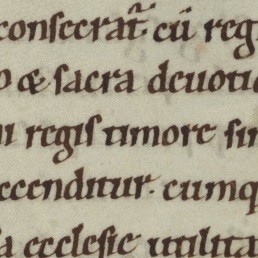 consecrat̄. cū reg
o æ sacra deuotio
ni regis timore sin
ccenditur. cumq
sa ecclesie utilita